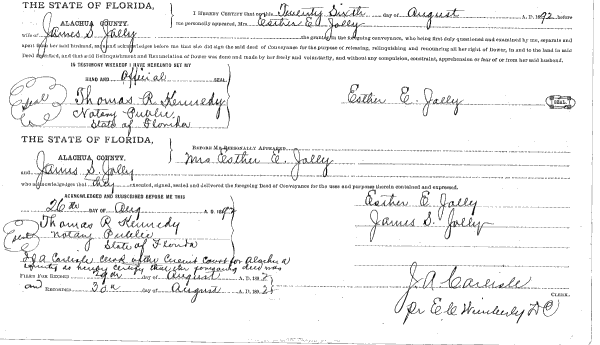 THE STATE OF FLORIDA,
ALACHUA COUNTY.
I HEREBY CERTIFY that on this Twenty Sixth day of August A. D. 1892, before
me personally appeared, Mrs. Esther E. Jolly
wife of James S. Jolly the grantor in the foregoing conveyance, who being first duly questioned and examined by me, separate and
apart from her said husband, did acknowledge before me that she did sign the said deed of Conveyance for the purpose of releasing, relinquishing and renouncing all her right of dower, in and to the land in said
Deed described, and that said Relinquishment and Renunciation of Dower was done and made by her freely and voluntarily, and without any compulsion, constraint, apprehension or fear of or from her said husband.
IN TESTIMONY WHEREOF I HAVE HEREUNTO SET MY
HAND AND Official SEAL
Seal
Thomas R. Kennedy
Notary Public
State of Florida
Esther E. Jolly
SEAL
THE STATE OF FLORIDA,
ALACHUA COUNTY.
BEFORE ME PERSONALLY APPEARED
Mrs Esther E. Jolly
and James S. Jolly
who acknowledges that they executed, signed, sealed and delivered the foregoing Deed of Conveyance for the uses and purposes therein contained and expressed.
ACKNOWLEDGED AND SUBSCRIBED BEFORE ME THIS
26th DAY OF Aug A. D. 1892
Seal
Thomas R Kennedy
Notary Public
State of Florida
Esther E. Jolly
James S. Jolly
I J A Carlisle Clerk of the Circuit Court for Alachua
County do hereby certify that the foregoing deed was
FILED FOR RECORD 29th day of August A. D. 1892
and RECORDED 30th day of August A. D. 1892
J. A. Carlisle
CLERK.
pr E C Wimberly D C